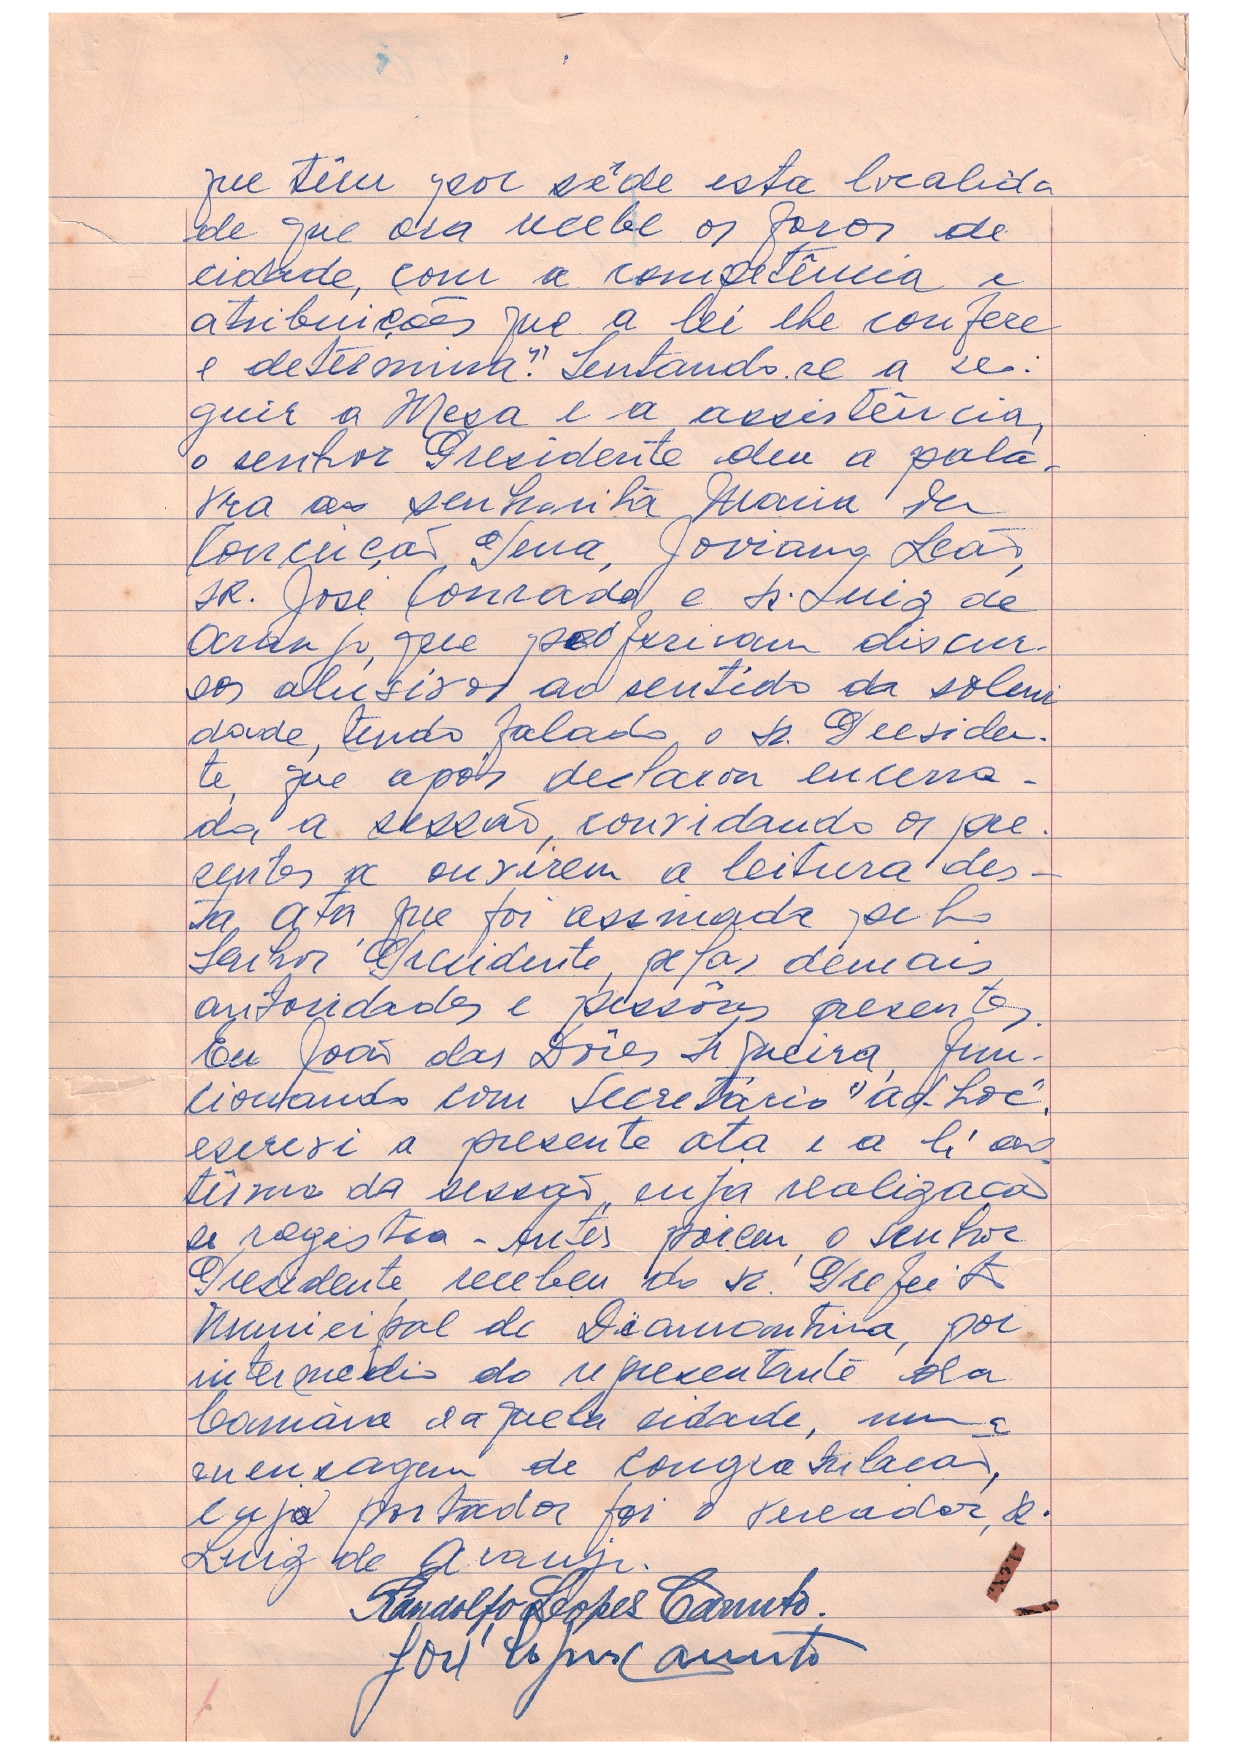 que têm por séde esta localida
de que ora recebe os foros de
cidade, com a competência e
atribuições que a lei lhe confere
e determina". Sentando-se a se-
guir a Mesa e a assistência,
o senhor Presidente deu a pala-
vra as senhorita Maria da
Conceição Pena, Joviano Leão,
SR. José Conrado e sr. Luiz de
Araujo, que proferiram discur-
sos alusivos ao sentido da soleni
dade, tendo falado o sr. Presiden-
te, que após declarou encerra-
da a sessão, convidando os pre-
sentes a ouvirem a leitura des-
ta ata que foi assinada pelo
Senhor Presidente, pelas demais
autoridades e pessôas presentes.
Eu João das Dôres Siqueira, fun-
cionando com Secretário "ad-hoc",
escrevi a presente ata e a li ao
têrmo da sessão, cuja realização
se registra - Antes porem, o senhor
Presidente recebeu do sr. Prefeito
Municipal de Diamantina, por
intermedio do representante da
Camâra daquela cidade, uma
mensagem de congratulacão,
cujo portador foi o vereador, sr.
Luiz de Araujo.
Randolfo Lopes Canuto.
José Lopes Canuto